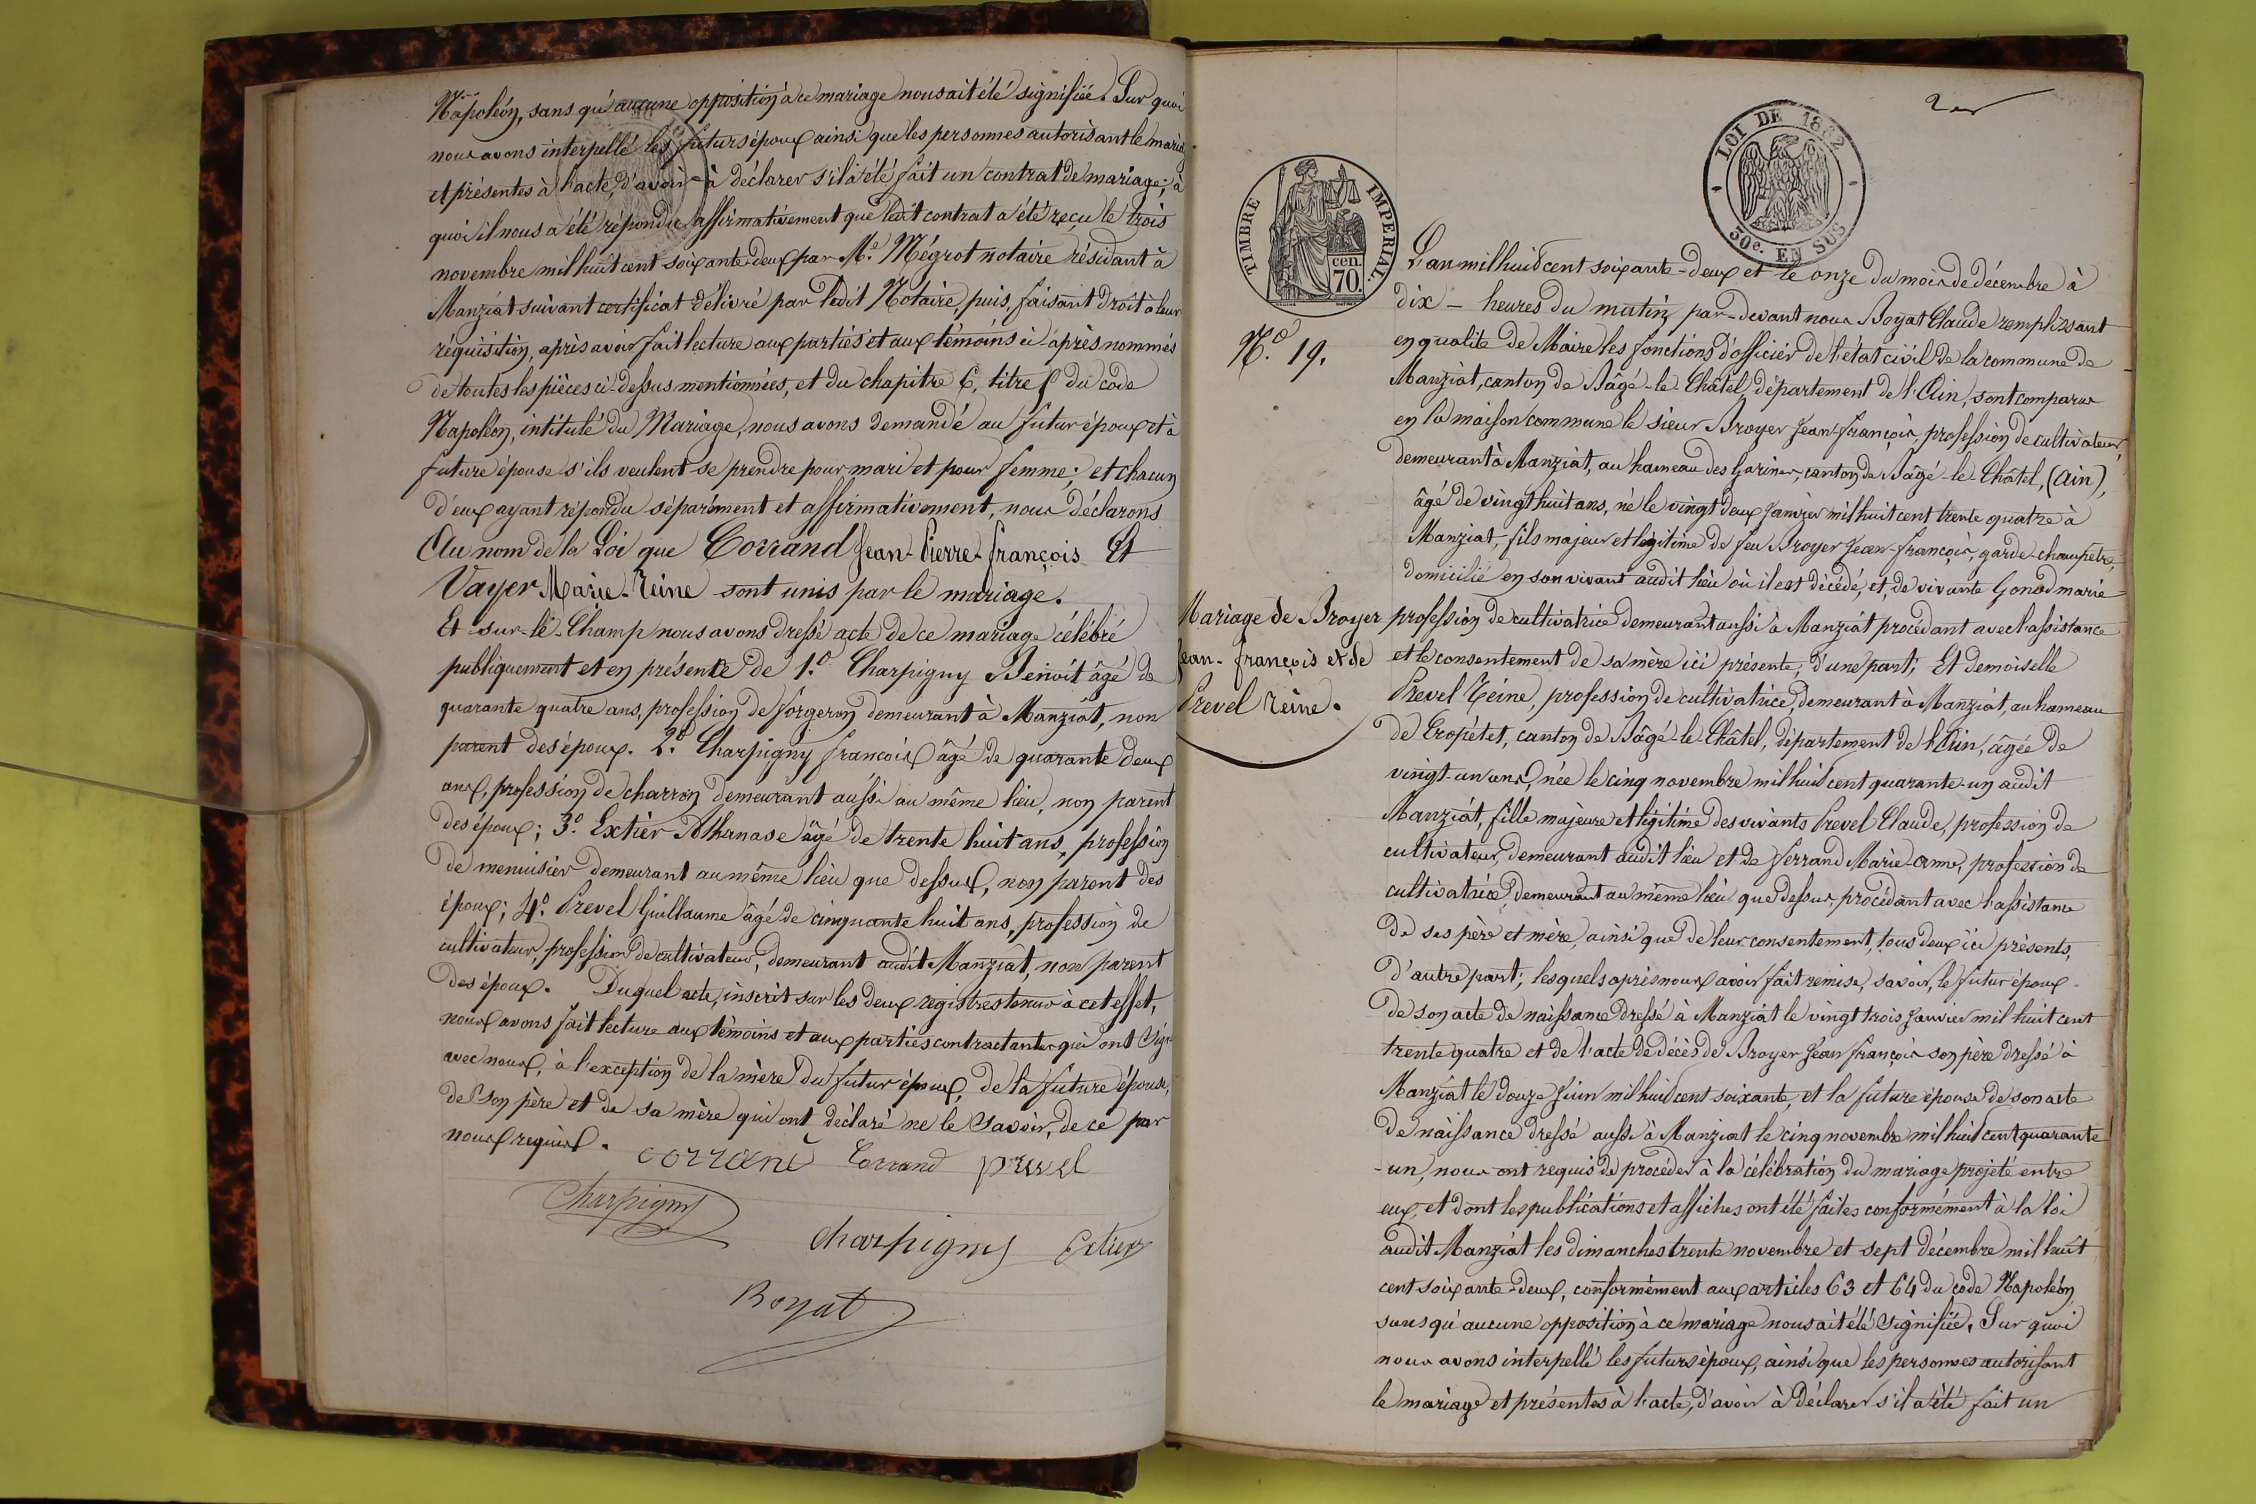 Napoléon, sans qu'aucune opposition à ce mariage nous ait été signifiée. Sur quoi
nous avons interpellé les futurs époux ainsi que les personnes autorisant le mariage
et présentes à l'acte, d'avoir à déclarer s'il a été fait un contrat de mariage; à
quoi il nous a été répondu affirmativement que ledit contrat a été reçu le trois
novembre mil huit cent soixante-deux par Me. Mégrot notaire résidant à
Manziat suivant certificat délivré par ledit Notaire, puis, faisant droit à leur
réquisition, après avoir fait lecture aux parties et aux témoins ci-après nommés
de toutes les pièces ci-dessus mentionnées, et du chapitre 6, titre 5 du code
Napoléon, intitulé du Mariage, nous avons demandé au futur époux et à
future épouse s'ils veulent se prendre pour mari et pour femme; et chacun
d'eux ayant répondu séparément et affirmativement, nous déclarons
Au nom de la Loi que Corrand Jean-Pierre-François Et
Vayer Marie-Reine sont unis par le mariage.
Et sur-le-Champ nous avons dressé acte de ce mariage célébré
publiquement et en présence de 1.o Charpigny Benoît âgé de
quarante quatre ans, profession de forgeron demeurant à Manziat, non
parent des époux. 2.o Charpigny françois âgé de quarante deux
ans, profession de charron demeurant aussi au même lieu, non parent
des époux; 3.o Extier Athanase âgé de trente huit ans, profession
de menuisier demeurant au même lieu que dessus, non parent des
époux; 4.o Prevel Guillaume âgé de cinquante huit ans, profession de
cultivateur, profession de cultivateur, demeurant audit Manziat, non parent
des époux. Duquel acte, inscrit sur les deux registres tenus à cet effet,
nous avons fait lecture aux témoins et aux parties contractantes qui ont Signé
avec nous, à l'exception de la mère du futur époux, de la future épouse,
de son père et de sa mère qui ont déclaré ne le Savoir, de ce par
nous requis.
corrand Corrand prevel
Charpigny
charpigny Extier
Boyat
LOI DE 1862
30c. EN SUS
TIMBRE IMPERIAL.
cen. 70.
N.o 19.
Mariage de Broyer
Jean-françois et de
Prevel Reine.
L'an mil huit cent soixante-deux et le onze du mois de décembre à
dix - heures du matin par-devant nous Boyat Claude remplissant
en qualité de Maire les fonctions d'officier de l'état civil de la commune de
Manziat, canton de Bâgé-le-Châtel, département de l'Ain, sont comparus
en la maison commune le sieur Broyer Jean-françois, profession de cultivateur,
demeurant à Manziat, au hameau des Gariner, canton de Bâgé-le-Châtel, (Ain),
âgé de vingt huit ans, né le vingt deux Janvier mil huit cent trente quatre à
Manziat, fils majeur et légitime de feu Broyer Jean-françois, garde-champêtre,
domicilié en son vivant audit lieu où il est décédé, et, de vivante Gonod marie
profession de cultivatrice demeurant aussi à Manziat procédant avec l'assistance
et le consentement de sa mère ici présente; d'une part; Et demoiselle
Prevel Reine, profession de cultivatrice, demeurant à Manziat, au hameau
de Cropétet, canton de Bâgé-le-Châtel, département de l'Ain, âgée de
vingt-un ans, née le cinq novembre mil huit cent quarante-un audit
Manziat, fille majeure et légitime des vivants Prevel Claude, profession de
cultivateur, demeurant audit lieu et de Ferrand Marie-Anne, profession de
cultivatrice, demeurant au même lieu que dessus, procédant avec l'assistance
de ses père et mère, ainsi que de leur consentement, tous deux ici présents,
d'autre part; lesquels après nous avoir fait remise, savoir, le futur époux
de son acte de naissance dressé à Manziat le vingt trois Janvier mil huit cent
trente quatre et de l'acte de décès de Broyer Jean françois son père dressé à
Manziat le douze Juin mil huit cent soixante, et la future épouse de son acte
de naissance dressé aussi à Manziat le cinq novembre mil huit cent quarante
-un, nous ont requis de procéder à la célébration du mariage projeté entre
eux, et dont les publications et affiches ont été faites conformément à la loi
audit Manziat les dimanches trente novembre et sept décembre mil huit
cent soixante-deux, conformément aux articles 63 et 64 du code Napoléon,
sans qu'aucune opposition à ce mariage nous ait été Signifiée. Sur quoi
nous avons interpellé les futurs époux, ainsi que les personnes autorisant
le mariage et présentes à l'acte, d'avoir à déclarer s'il a été fait un